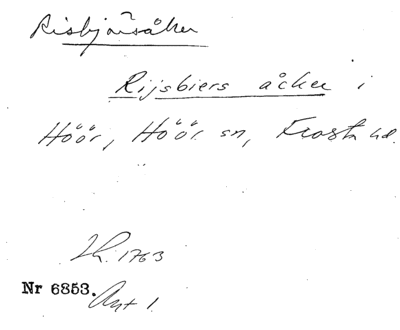 Risbjärsåker
Rijsbiers åcker i
Höör, Höör sn, Frosta hd.
1763
Nr 6853.
Akt 1.